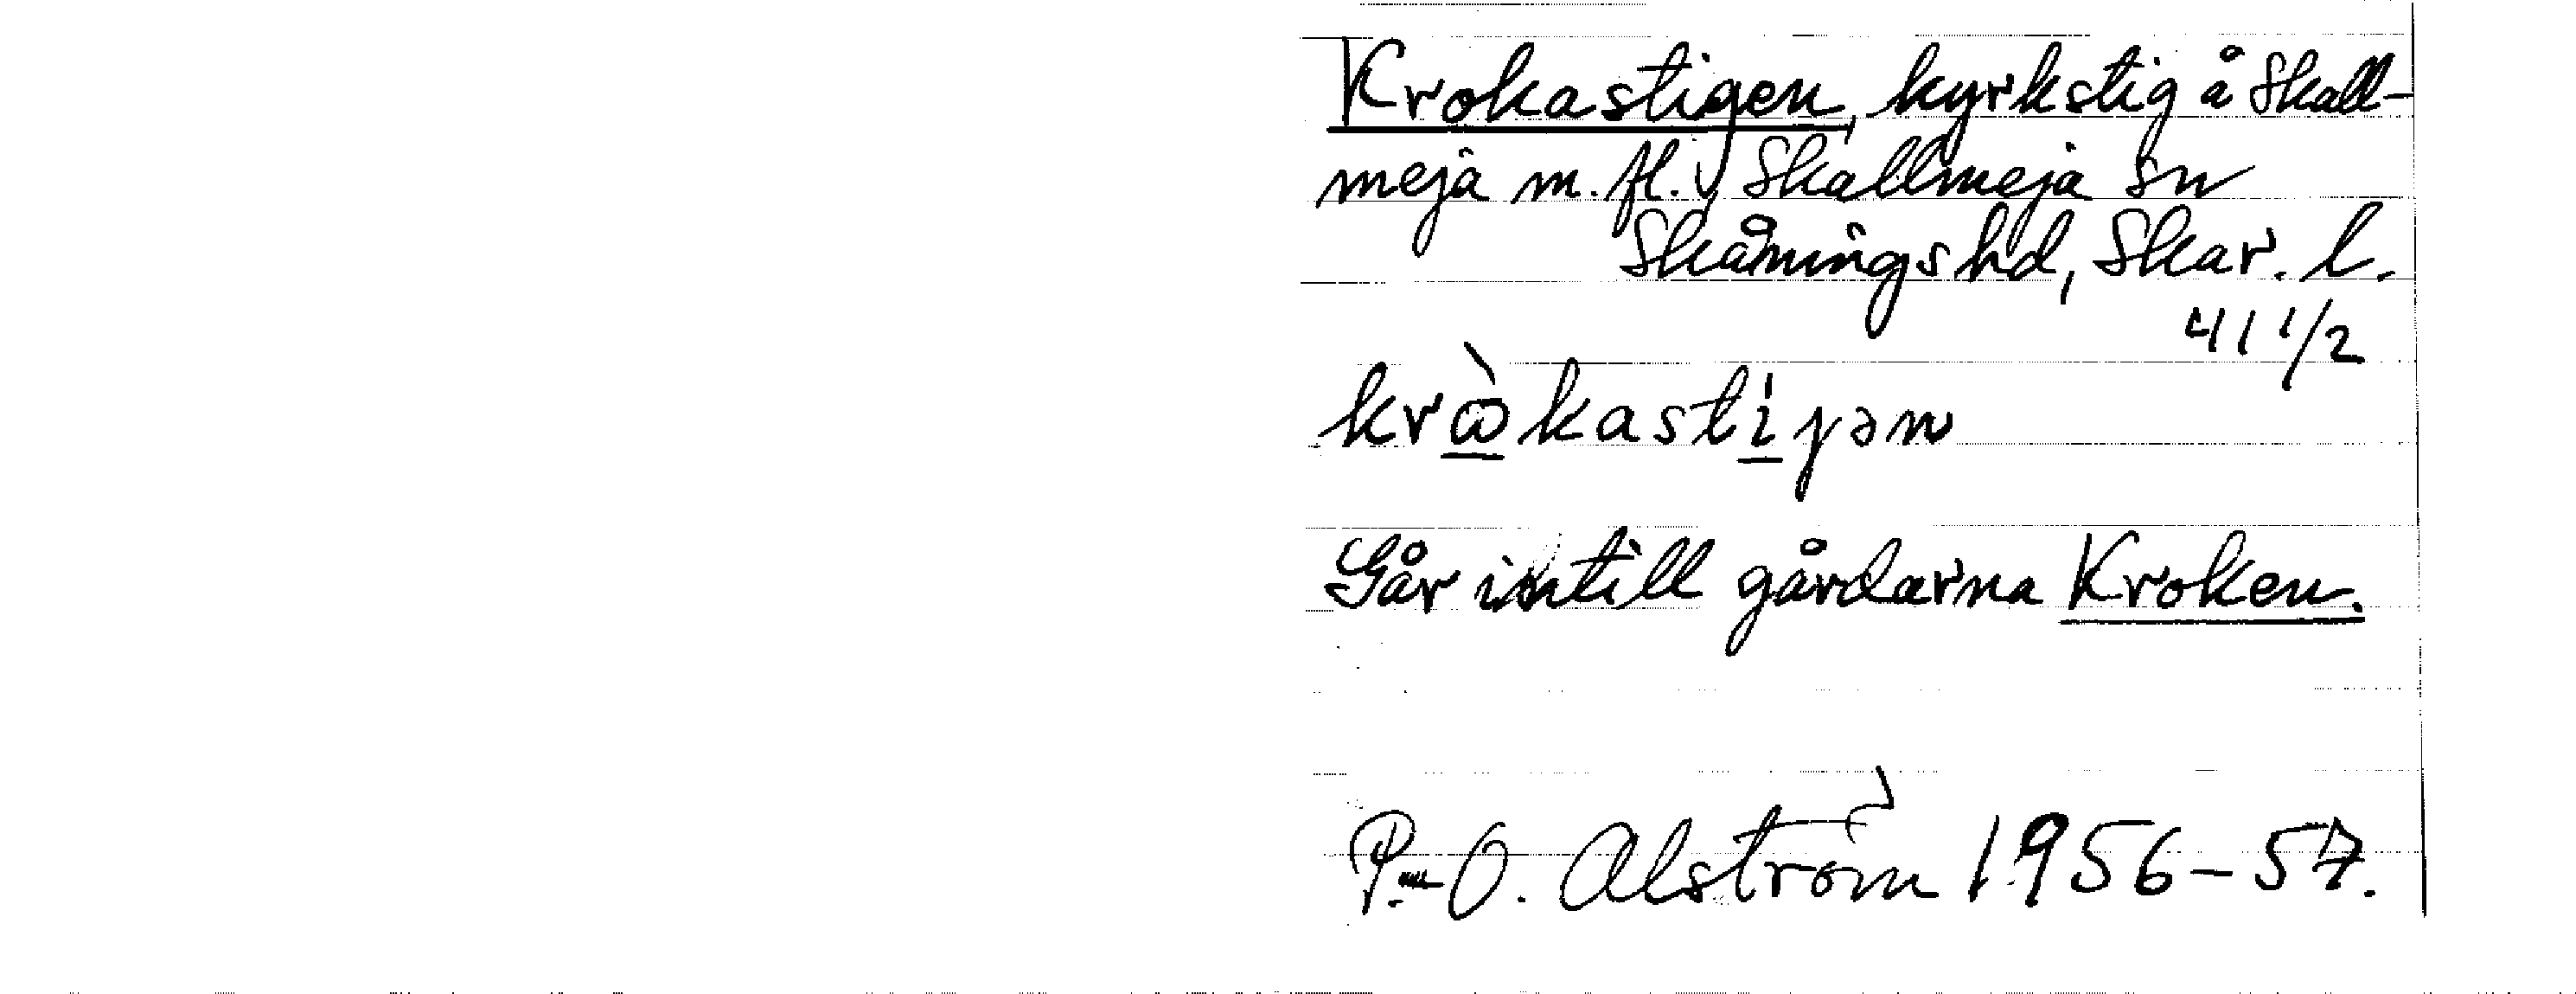 Krokastigen, kyrkstig å Skall-
meja m.fl., Skallmeja sn
Skånings hd, Skar. l.
41 1/2
krὼkastijən
Går intill gårdarna Kroken.
P-O. Alström 1956-57.